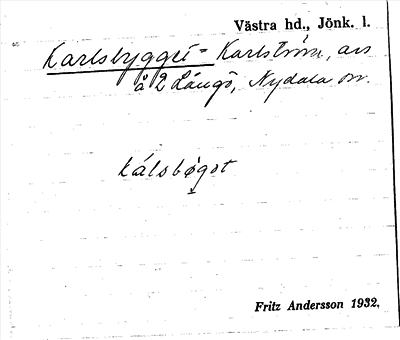 Västra hd., Jönk. l.
Karlsbygget = Karlström, avs
å 2 Långö, Nydala sn.
kálsbøgot
Fritz Andersson 1932.